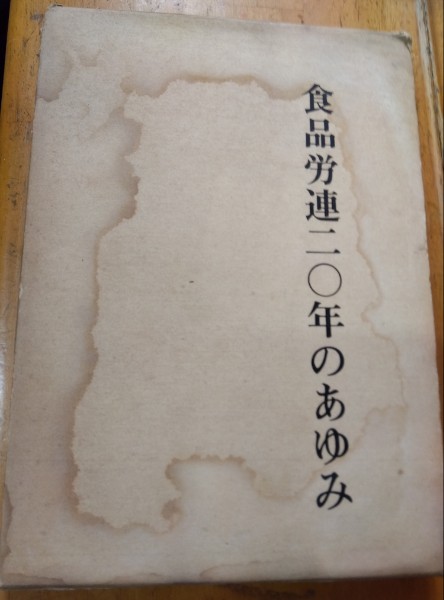 食品労連二〇年のあゆみ